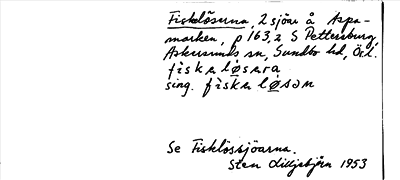 Fisklösorna, 2 sjöar å Aspa-
marken, p 163,2 S Pettersburg,
Askersunds sn, Sundbo hd, Ör l.
fiskaløsaṛa
sing. fiskaløsan
Se Fisklössjöarna.
Sten Lilljebjörn 1953